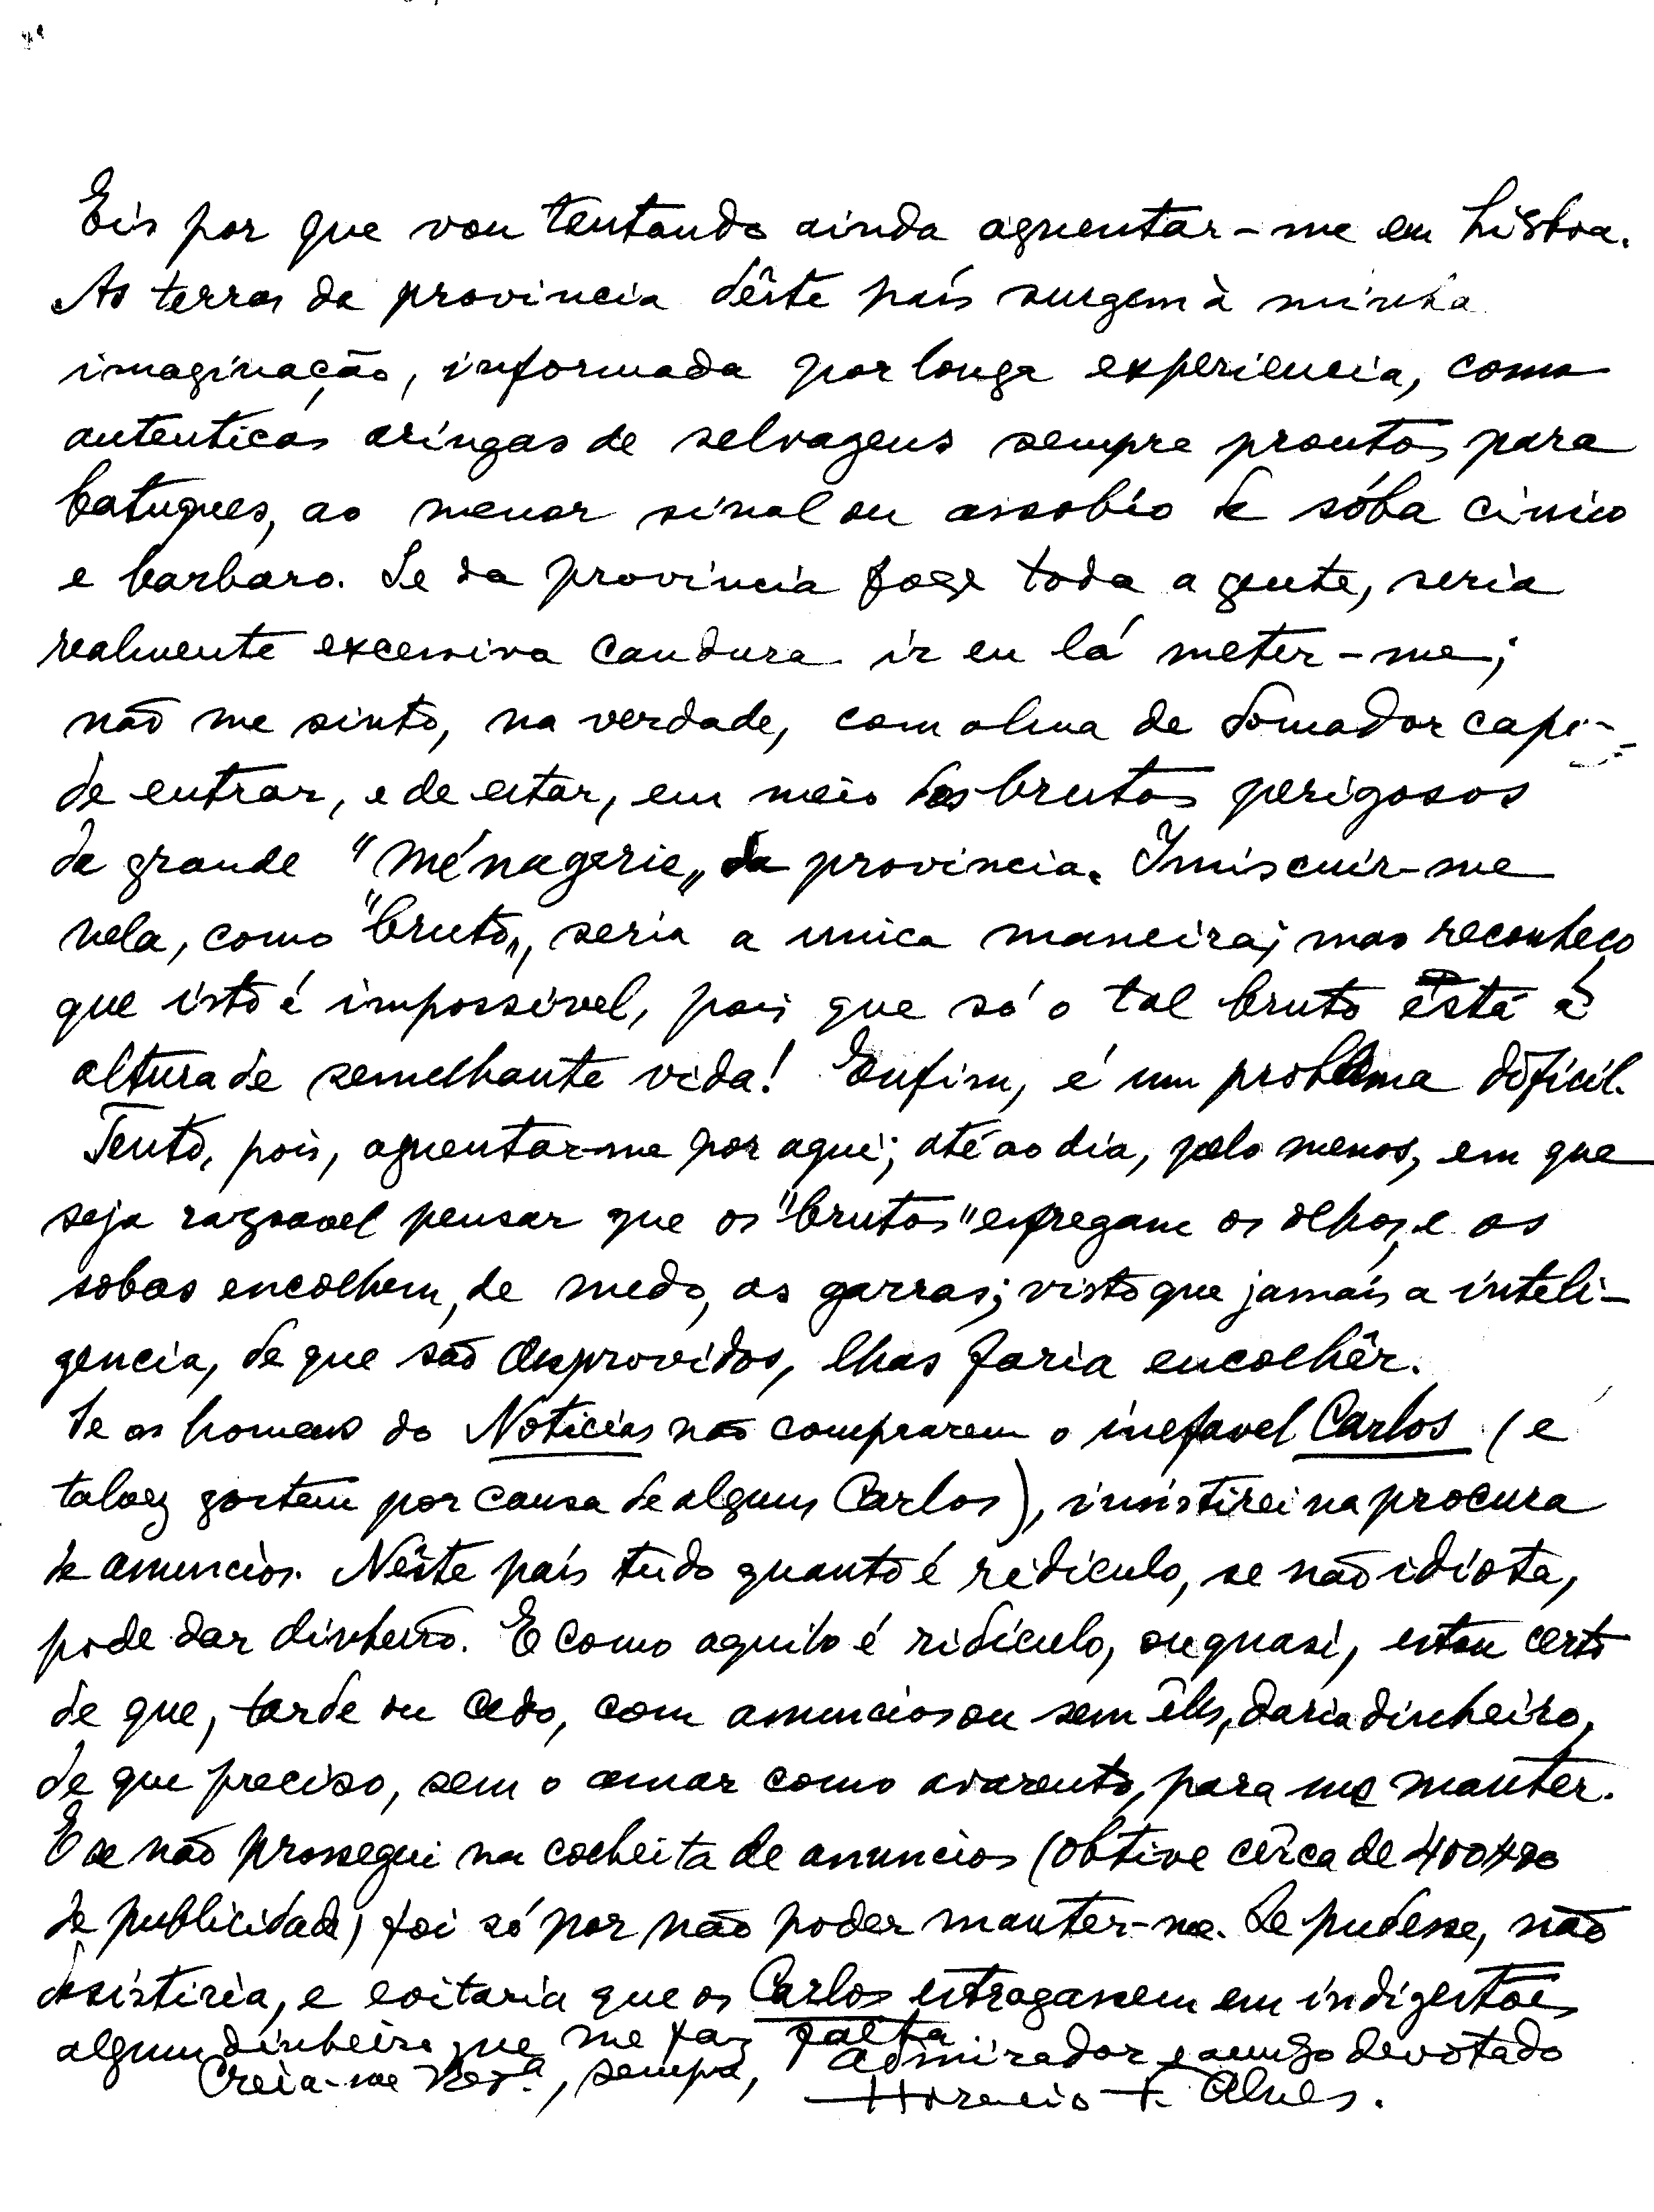 Eis por que vou tentando ainda aguentar-me em Lisboa.
As terras da provincia dêste país surgem à minha
imaginação, informada por longa experiencia, como
autenticas aringas de selvagens sempre prontos para
batuques, ao menor sinal ou assobio de sóba cinico
e barbaro. Se da provincia foge toda a gente, seria
realmente excessiva candura ir eu lá meter-me;
não me sinto, na verdade, com alma de domador
de entrar, e de estar, em meio dos brutos perigosos
da grande "ménagerie" da provincia. Imiscuir-me
nela, como "bruto", seria a unica maneira; mas reconheço
que isto é impossivel, pois que só o tal bruto está á
altura de semelhante vida! Enfim, é um problema dificil.
Tento, pois, aguentar-me por aqui; até ao dia, pelo menos, em que
seja razoavel pensar que os "brutos" esfregam os olhos, e os
sobas encolhem, de medo, as garras; visto que jamais a inteli-
gencia, de que são desprovidos, lhas faria encolhêr.
Se os homens do Noticias não comprarem o inefavel Carlos (e
talvez gostem por causa de alguns Carlos), insistirei na procura
de anuncios. Nêste país tudo quanto é ridiculo, se não idiota,
pode dar dinheiro. E como aquilo é ridiculo, ou quasi, estou certo
de que, tarde ou cedo, com anuncios ou sem êles, daria dinheiro,
de que preciso, sem o amar como avarento, para me manter.
E se não prossegui na colheita de anuncios (obtive cêrca de 400$00
de publicidade) foi só por não poder manter-me. Se pudesse, não
desistiria, e evitaria que os Carlos estragassem em indigestões
algum dinheiro que me faz falta
Creia-me, sempre, admirador e amigo devotado
Horacio F. Alves.